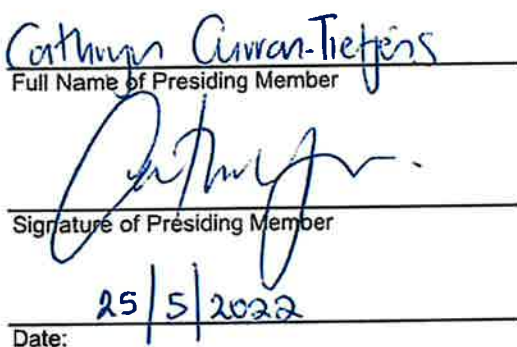 Cathryn Curran-Tietjens
Full Name of Presiding Member
Signature of Presiding Member
25/5/2022
Date: